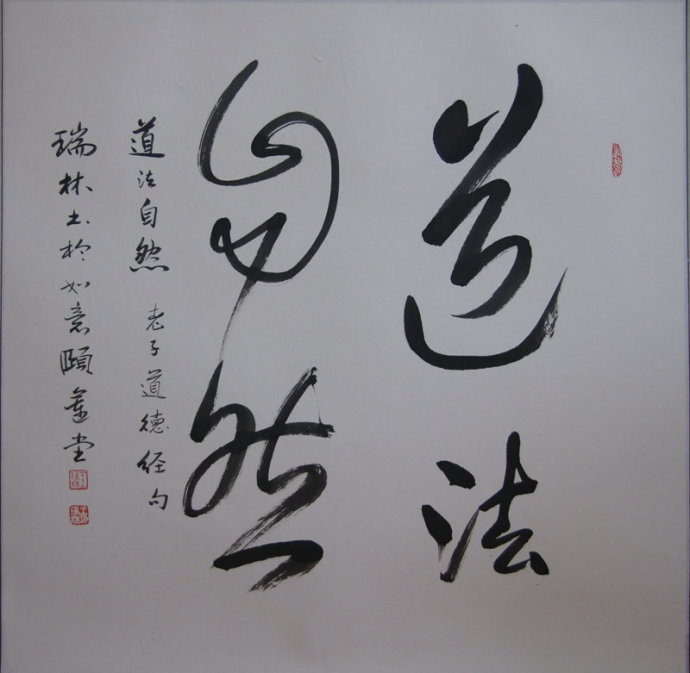 道法
自然
道法自然 老子道德经句
瑞林书於如意颐莲堂